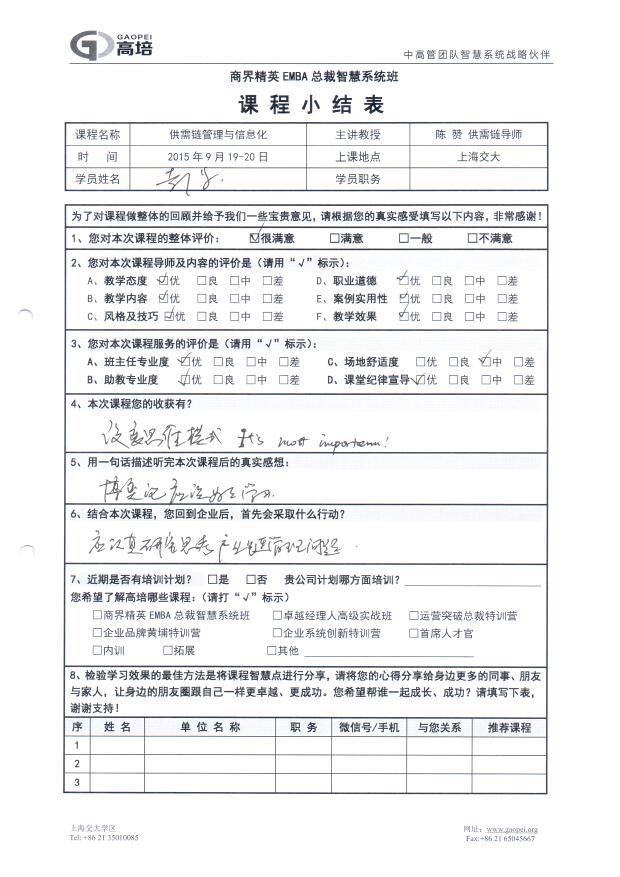 GAOPEI
高培
中高管团队智慧系统战略伙伴
商界精英 EMBA 总裁智慧系统班
课程小结表
课程名称 供需链管理与信息化 主讲教授 陈 赞 供需链导师
时 间 2015 年 9 月 19-20 日 上课地点 上海交大
学员姓名 学员职务
为了对课程做整体的回顾并给予我们一些宝贵意见，请根据您的真实感受填写以下内容，非常感谢！
1、您对本次课程的整体评价： ☑很满意 □满意 □一般 □不满意
2、您对本次课程导师及内容的评价是（请用“√”标示）：
A、教学态度 ☑优 □良 □中 □差 D、职业道德 ☑优 □良 □中 □差
B、教学内容 ☑优 □良 □中 □差 E、案例实用性 ☑优 □良 □中 □差
C、风格及技巧 ☑优 □良 □中 □差 F、教学效果 ☑优 □良 □中 □差
3、您对本次课程服务的评价是（请用“√”标示）：
A、班主任专业度 ☑优 □良 □中 □差 C、场地舒适度 □优 □良 ☑中 □差
B、助教专业度 ☑优 □良 □中 □差 D、课堂纪律宣导 ☑优 □良 □中 □差
4、本次课程您的收获有？
思维模式 It's most important!
5、用一句话描述听完本次课程后的真实感想：
6、结合本次课程，您回到企业后，首先会采取什么行动？
应认真研究思考产业链管理问题。
7、近期是否有培训计划？ □是 □否 贵公司计划哪方面培训？
您希望了解高培哪些课程：（请打“√”标示）
□商界精英 EMBA 总裁智慧系统班 □卓越经理人高级实战班 □运营突破总裁特训营
□企业品牌黄埔特训营 □企业系统创新特训营 □首席人才官
□内训 □拓展 □其他
8、检验学习效果的最佳方法是将课程智慧点进行分享，请将您的心得分享给身边更多的同事、朋友
与家人，让身边的朋友圈跟自己一样更卓越、更成功。您希望帮谁一起成长、成功？请填写下表，
谢谢支持！
序 姓 名 单 位 名 称 职 务 微信号/手机 与您关系 推荐课程
1
2
3
上海交大学区 网址：www.gaopei.org
Tel: +86 21 35010085 Fax:+86 21 65045667